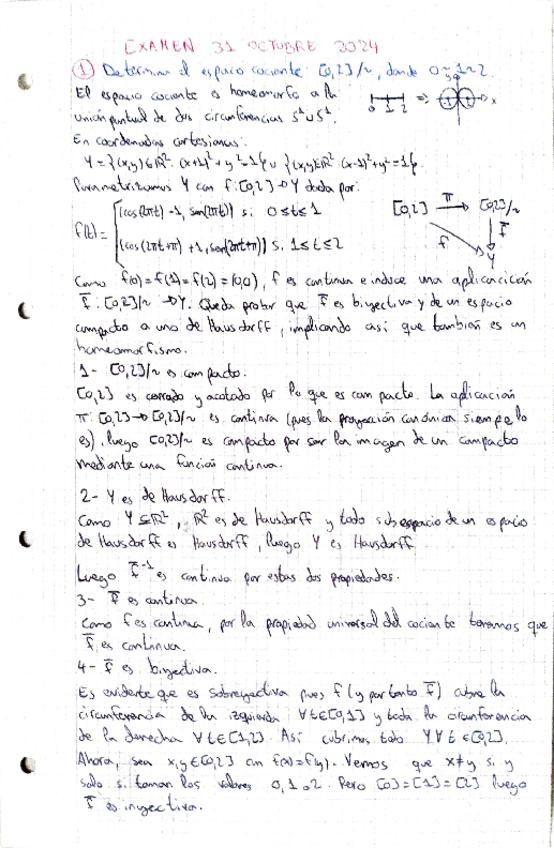 EXAMEN 31 OCTUBRE 2024
① Determina el espacio cociente [0,2]/~, donde 0~1~2.
El espacio cociente es homeomorfo a la
unión puntual de dos circunferencias S¹∪S¹.
0 1 2 => x
En coordenadas cartesianas:
Y = {(x,y)∈ℝ²: (x+1)²+y²=1} ∪ {(x,y)∈ℝ²: (x-1)²+y²=1}.
Parametrizamos Y con f: [0,2]→Y dada por:
f(t)= { (cos(2πt)-1, sen(2πt)) si 0≤t≤1
(cos(2πt+π)+1, sen(2πt+π)) si 1≤t≤2
[0,2] π→ [0,2]/~
f f̄
Y
Como f(0)=f(1)=f(2)=(0,0), f es continua e induce una aplicarcición
f̄: [0,2]/~ →Y. Queda probar que f̄ es biyectiva y de un espacio
compacto a uno de Hausdorff, implicando así que también es un
homeomorfismo.
1- [0,2]/~ es compacto.
[0,2] es cerrado y acotado por lo que es compacto. La aplicación
π: [0,2]→[0,2]/~ es continua (pues la proyección canónica siempre lo
es), luego [0,2]/~ es compacto por ser la imagen de un compacto
mediante una función continua.
2- Y es de Hausdorff.
Como Y⊆ℝ², ℝ² es de Hausdorff y todo subespacio de un espacio
de Hausdorff es Hausdorff, luego Y es Hausdorff
Luego f̄⁻¹ es continua por estas dos propiedades.
3- f̄ es continua.
Como f es continua, por la propiedad universal del cociente tenemos que
f̄ es continua.
4- f̄ es biyectiva.
Es evidente que es sobreyectiva pues f (y por tanto f̄) cubre la
circunferencia de la izquierda ∀t∈[0,1] y toda la circunferencia
de la derecha ∀t∈[1,2]. Así cubrimos todo Y ∀t∈[0,2].
Ahora, sea x,y∈[0,2] con f(x)=f(y). Vemos que x≠y si y
solo si toman los valores 0,1 o 2. Pero [0]=[1]=[2] luego
f̄ es inyectiva.